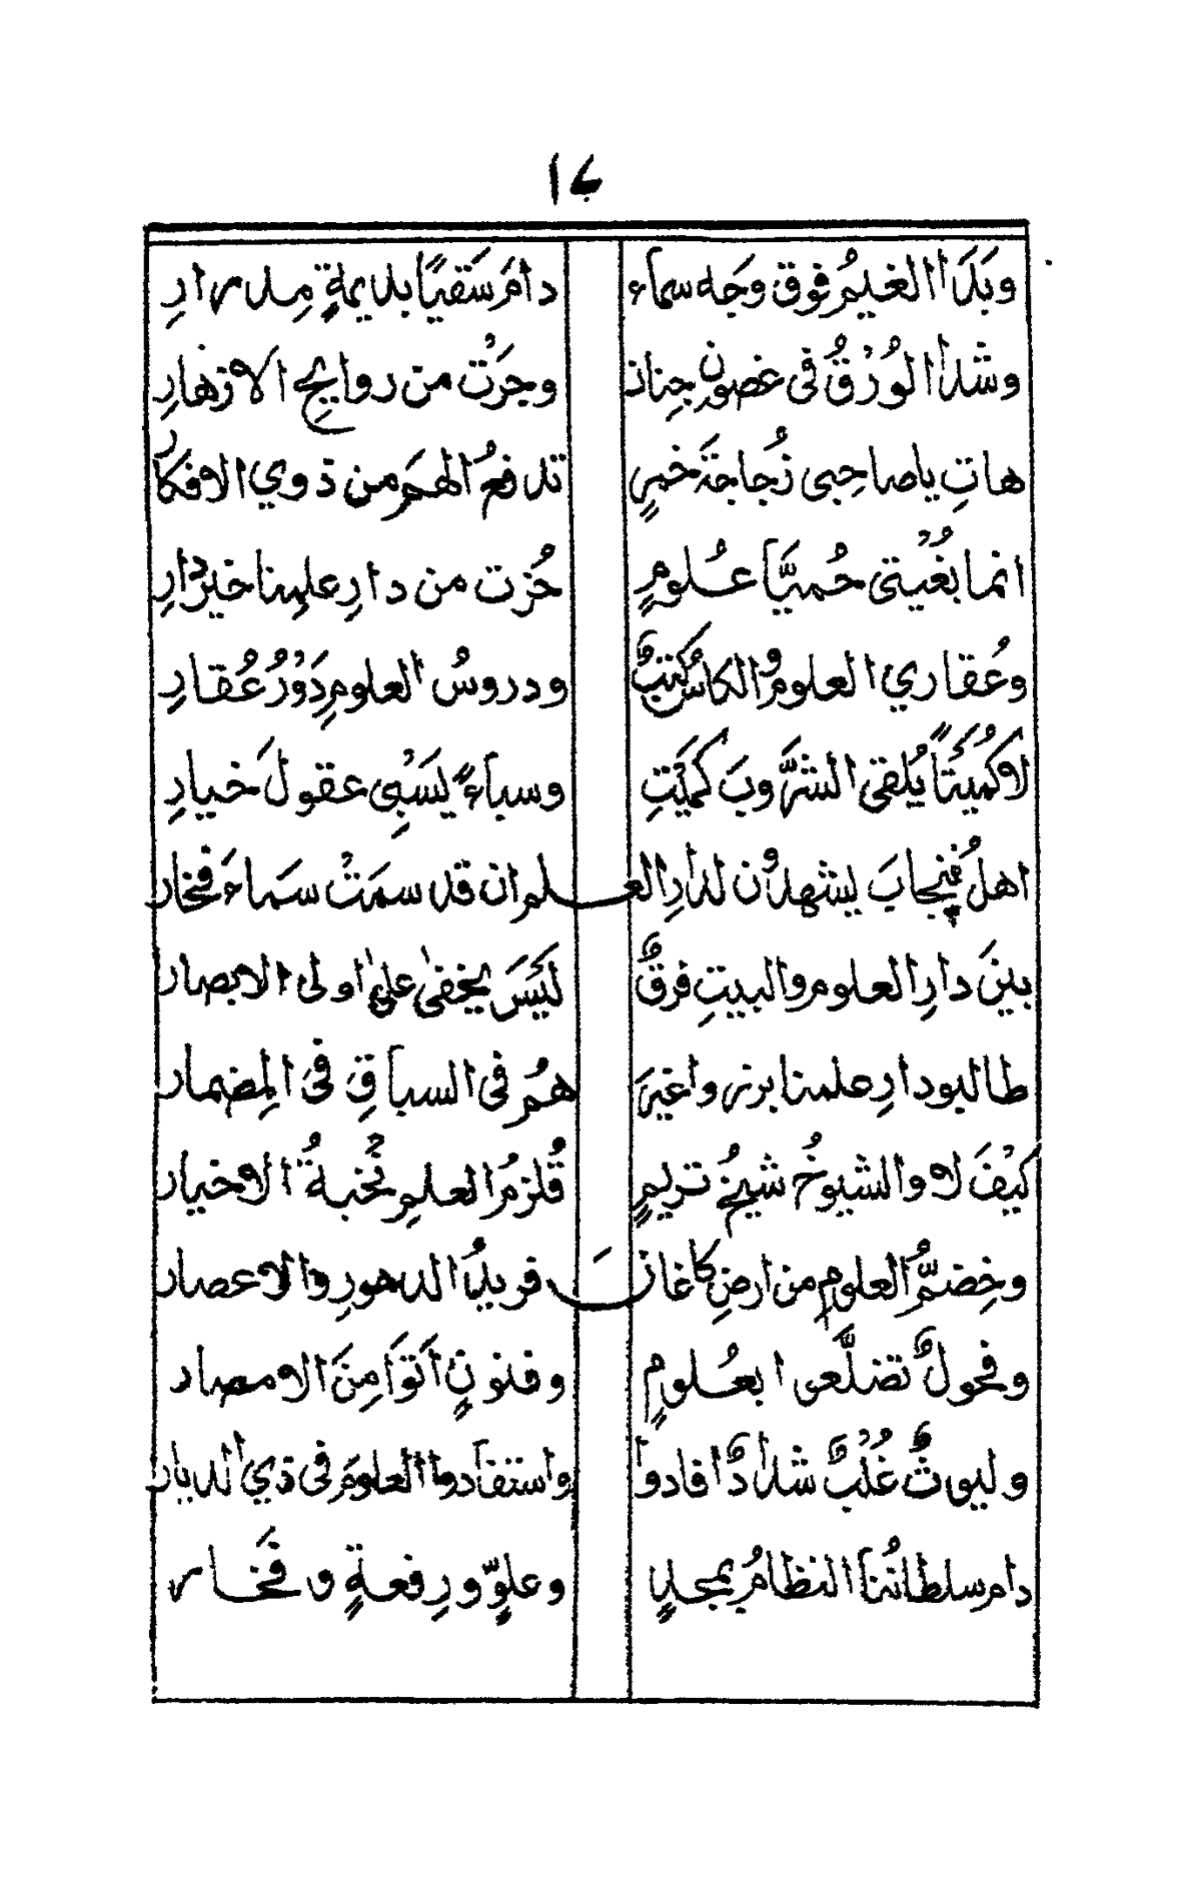 ۱۷
وبَدَا الغيمُ فوق وَجَه سماء دامَ سَقيًا بديمةٍ مِدرارِ
وشدا الوُرْقُ فى غصونِ جِنان وجرَتْ من روايحِ الازهارِ
هاتِ ياصاحِبى زُجاجةَ خمرٍ تدفعُ الهمَ من ذوي الافكارِ
انما بُغْيتى حُميَّا عُلومٍ حُزت من دارِ علمِنا خيرَ دارِ
وعُقاري العلومُ والكاسُ كُتبٌ ودروسُ العلومِ دَوْرُ عُقارِ
لا كُمَيْتاً يُلقى الشَّروبَ كميَتِ وسباءً يَسْبِى عقولَ خيارِ
اهلُ فنجابَ يشهدُن لدارِ العلم ان قد سمَتْ سَماءَ فَخار
بينَ دارِ العلوم والبيتِ فرقٌ لَيْسَ يخفىٰ علىٰ اولى الابصار
طالبو دارِ علمنا برزوا غيرَ همُ فى السباقِ فى المِضمار
كيْفَ لا والشيوخُ شيخُ تريمٍ قُلزمُ العلمِ نُخْبةُ الاخيار
وخِضمُّ العلومِ من ارضِ كاغانَ فريدُ الدهورِ والاعصار
وفحولٌ تضلَّعوا بعُلومٍ وفنونٍ اَتَوَا مِنَ الامصار
وليوثٌ غُلْبٌ شدادٌ افادوا واستفادوا العلومَ فى ذي الديار
دام سلطانُنا النظامُ بمجدٍ وعلوٍّ ورِفعةٍ وفَخار